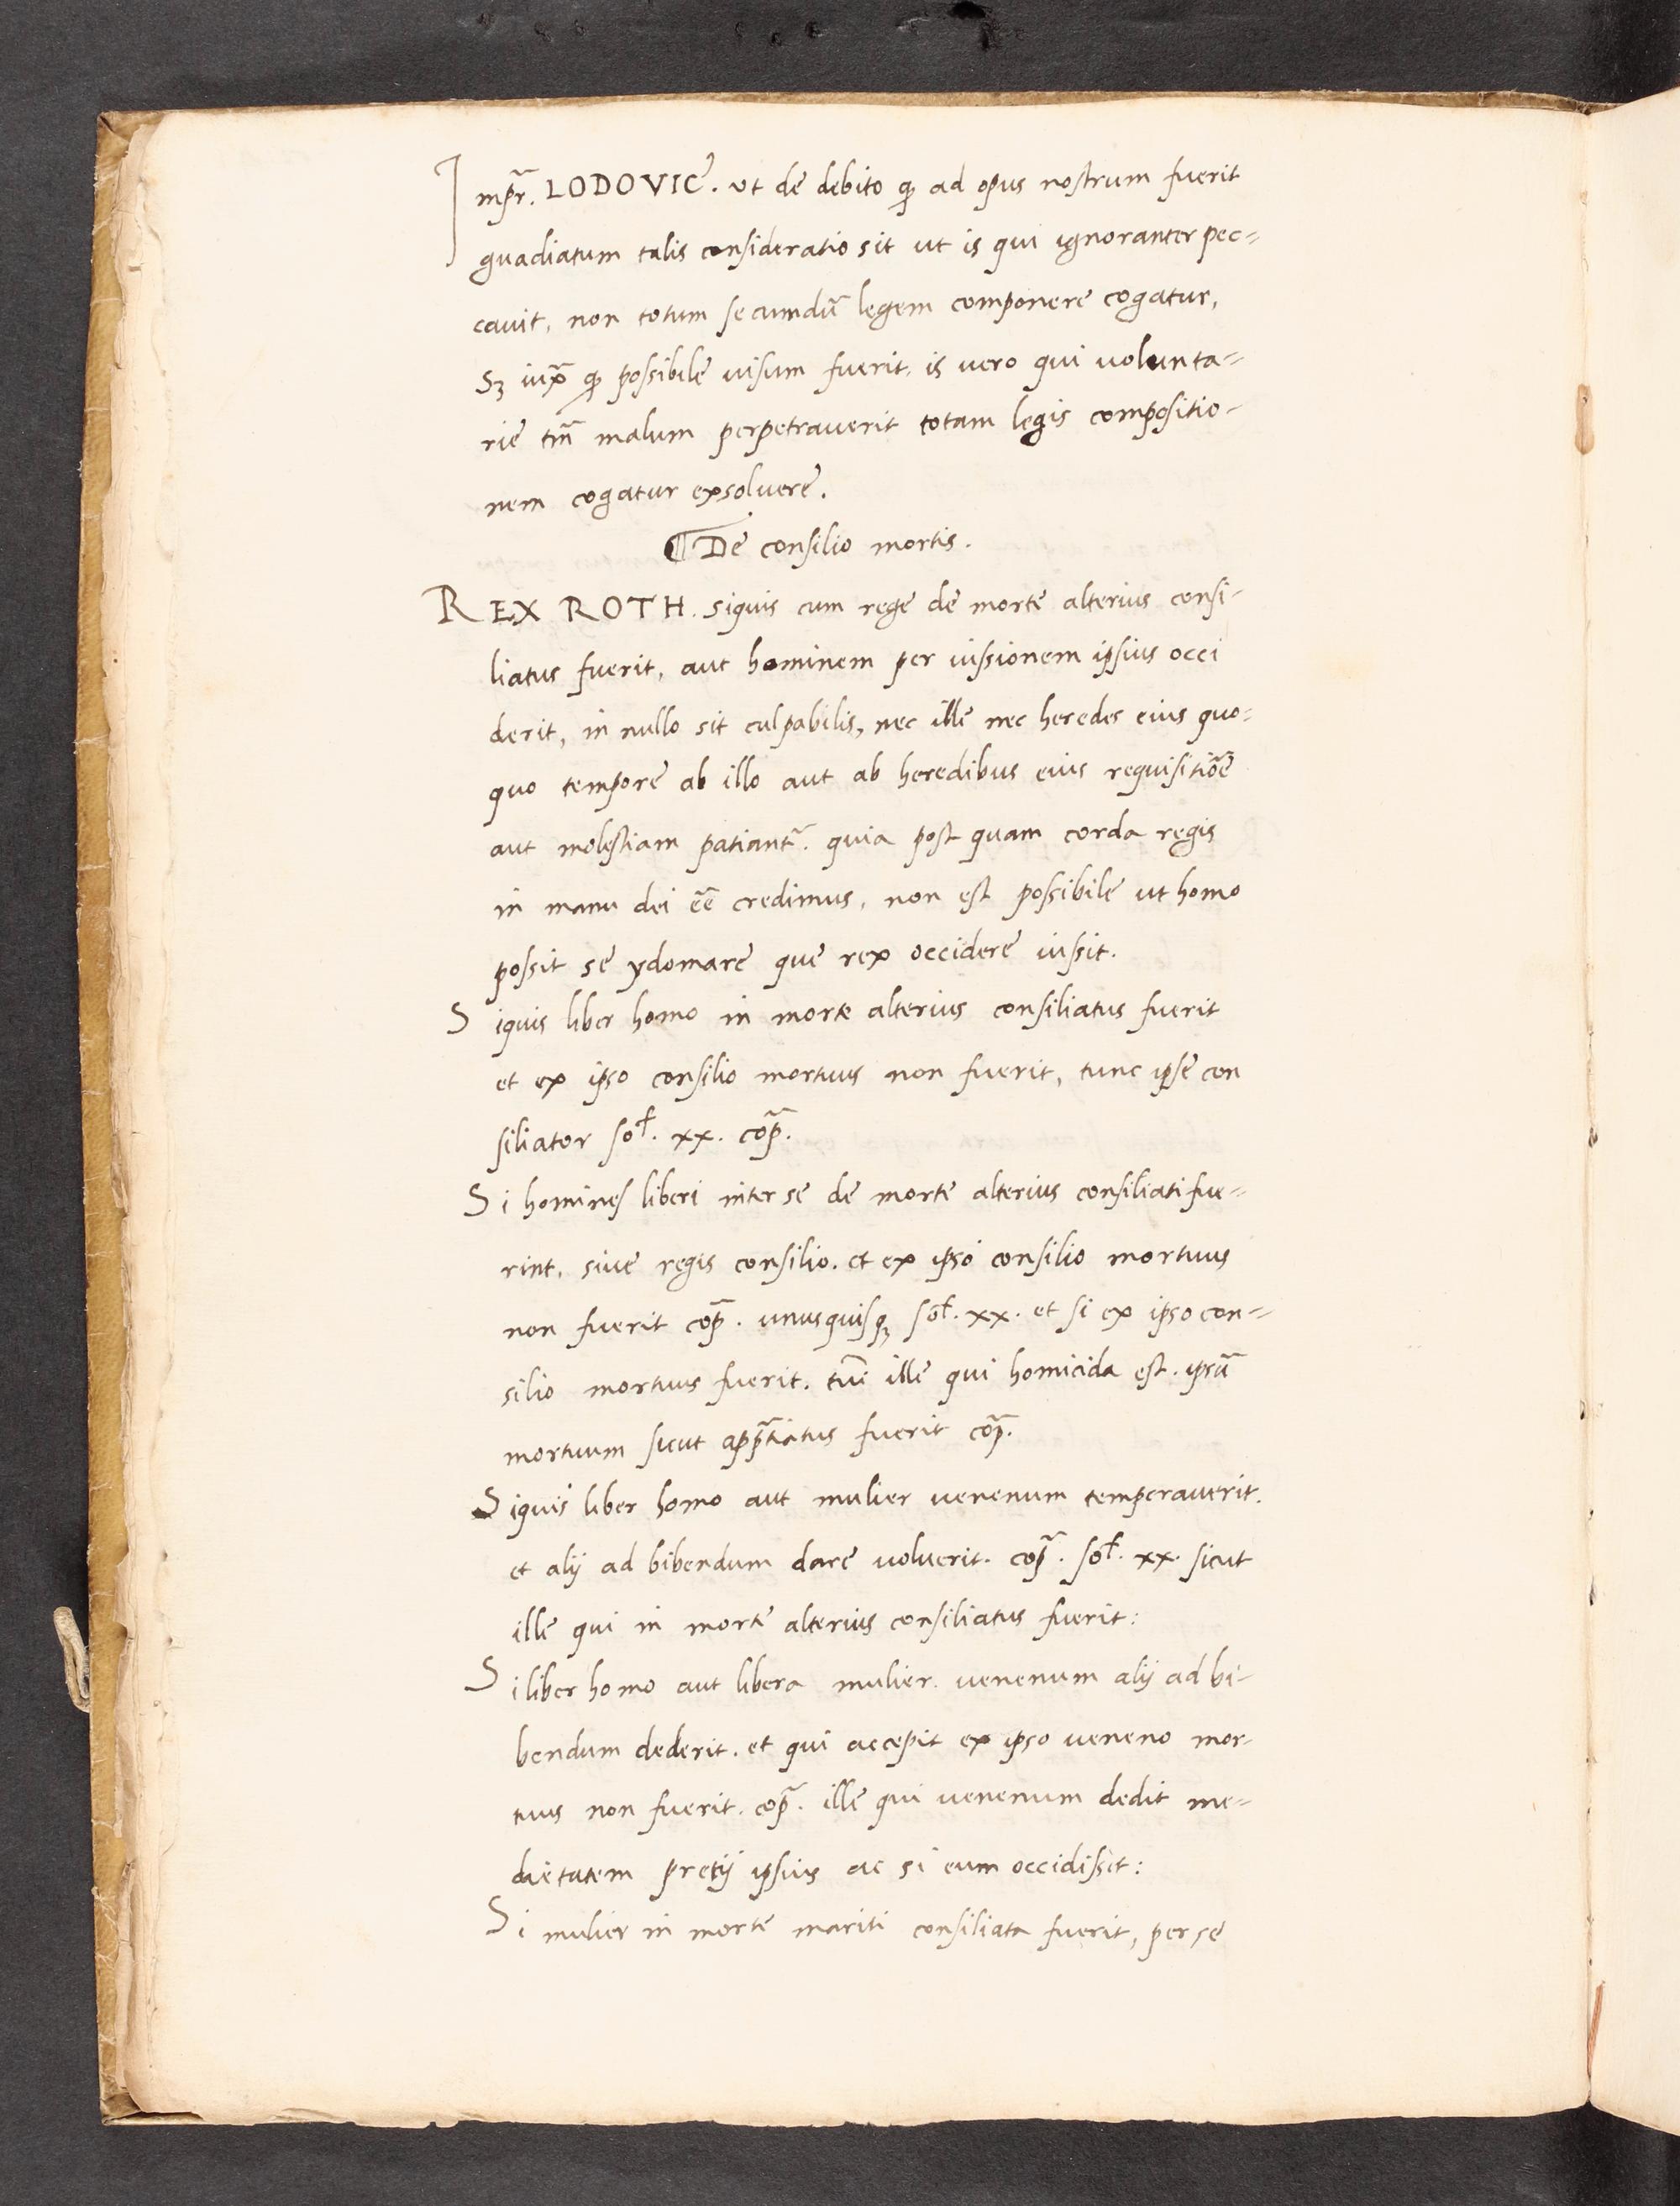 Imp̃r. LODOVIC̃. ut de debito qᷓ ad opus nostrum fuerit
guadiatum talis consideratio sit ut is qui ignoranter pec=
cavit, non totum secumdũ legem componere cogatur,
Sꝫ iuxᷓ qᷓ possibile uisum fuerit, is vero qui volunta=
rie tm̃ malum perpetraverit totam legis compositio-
nem cogatur exsoluere.
¶ De consilio mortis.
REX ROTH. siquis cum rege de morte alterius consi-
liatus fuerit, aut hominem per iussionem ipsius occi
derit, in nullo sit culpabilis, nec ille nec heredes eius quo-
quo tempore ab illo aut ab heredibus eius requisitiõe
aut molestiam patiant̃. quia post quam corda regis
in manu dei eẽ credimus, non est possibile ut homo
possit se ydomare que rex occidere iussit.
Siquis liber homo in morte alterius consiliatus fuerit
et ex ipso consilio mortuus non fuerit, tunc ipse con
siliator soł. xx. cõp̃.
Si homines liberi inter se de morte alterius consiliati fue=
rint, sive regis consilio. et ex ipso consilio mortuus
non fuerit cõp̃. unusquisqꝫ soł. xx. et si ex ipso con=
silio mortuus fuerit. tũi ille qui homicida est. ipsũ
mortuum sicut app̃tiatus fuerit cõp̃.
Siquis liber homo aut mulier venenum temperaverit.
et alij ad bibendum dare voluerit. cõp̃. soł. xx. sicut
ille qui in morte alterius consiliatus fuerit:
Si liber homo aut libera mulier. venenum alij ad bi-
bendum dederit. et qui accepit ex ipso veneno mor-
tuus non fuerit. cõp̃. ille qui venenum dedit me-
dietatem pretij ipsius ac si eum occidisset:
Si mulier in morte mariti consiliata fuerit, per se